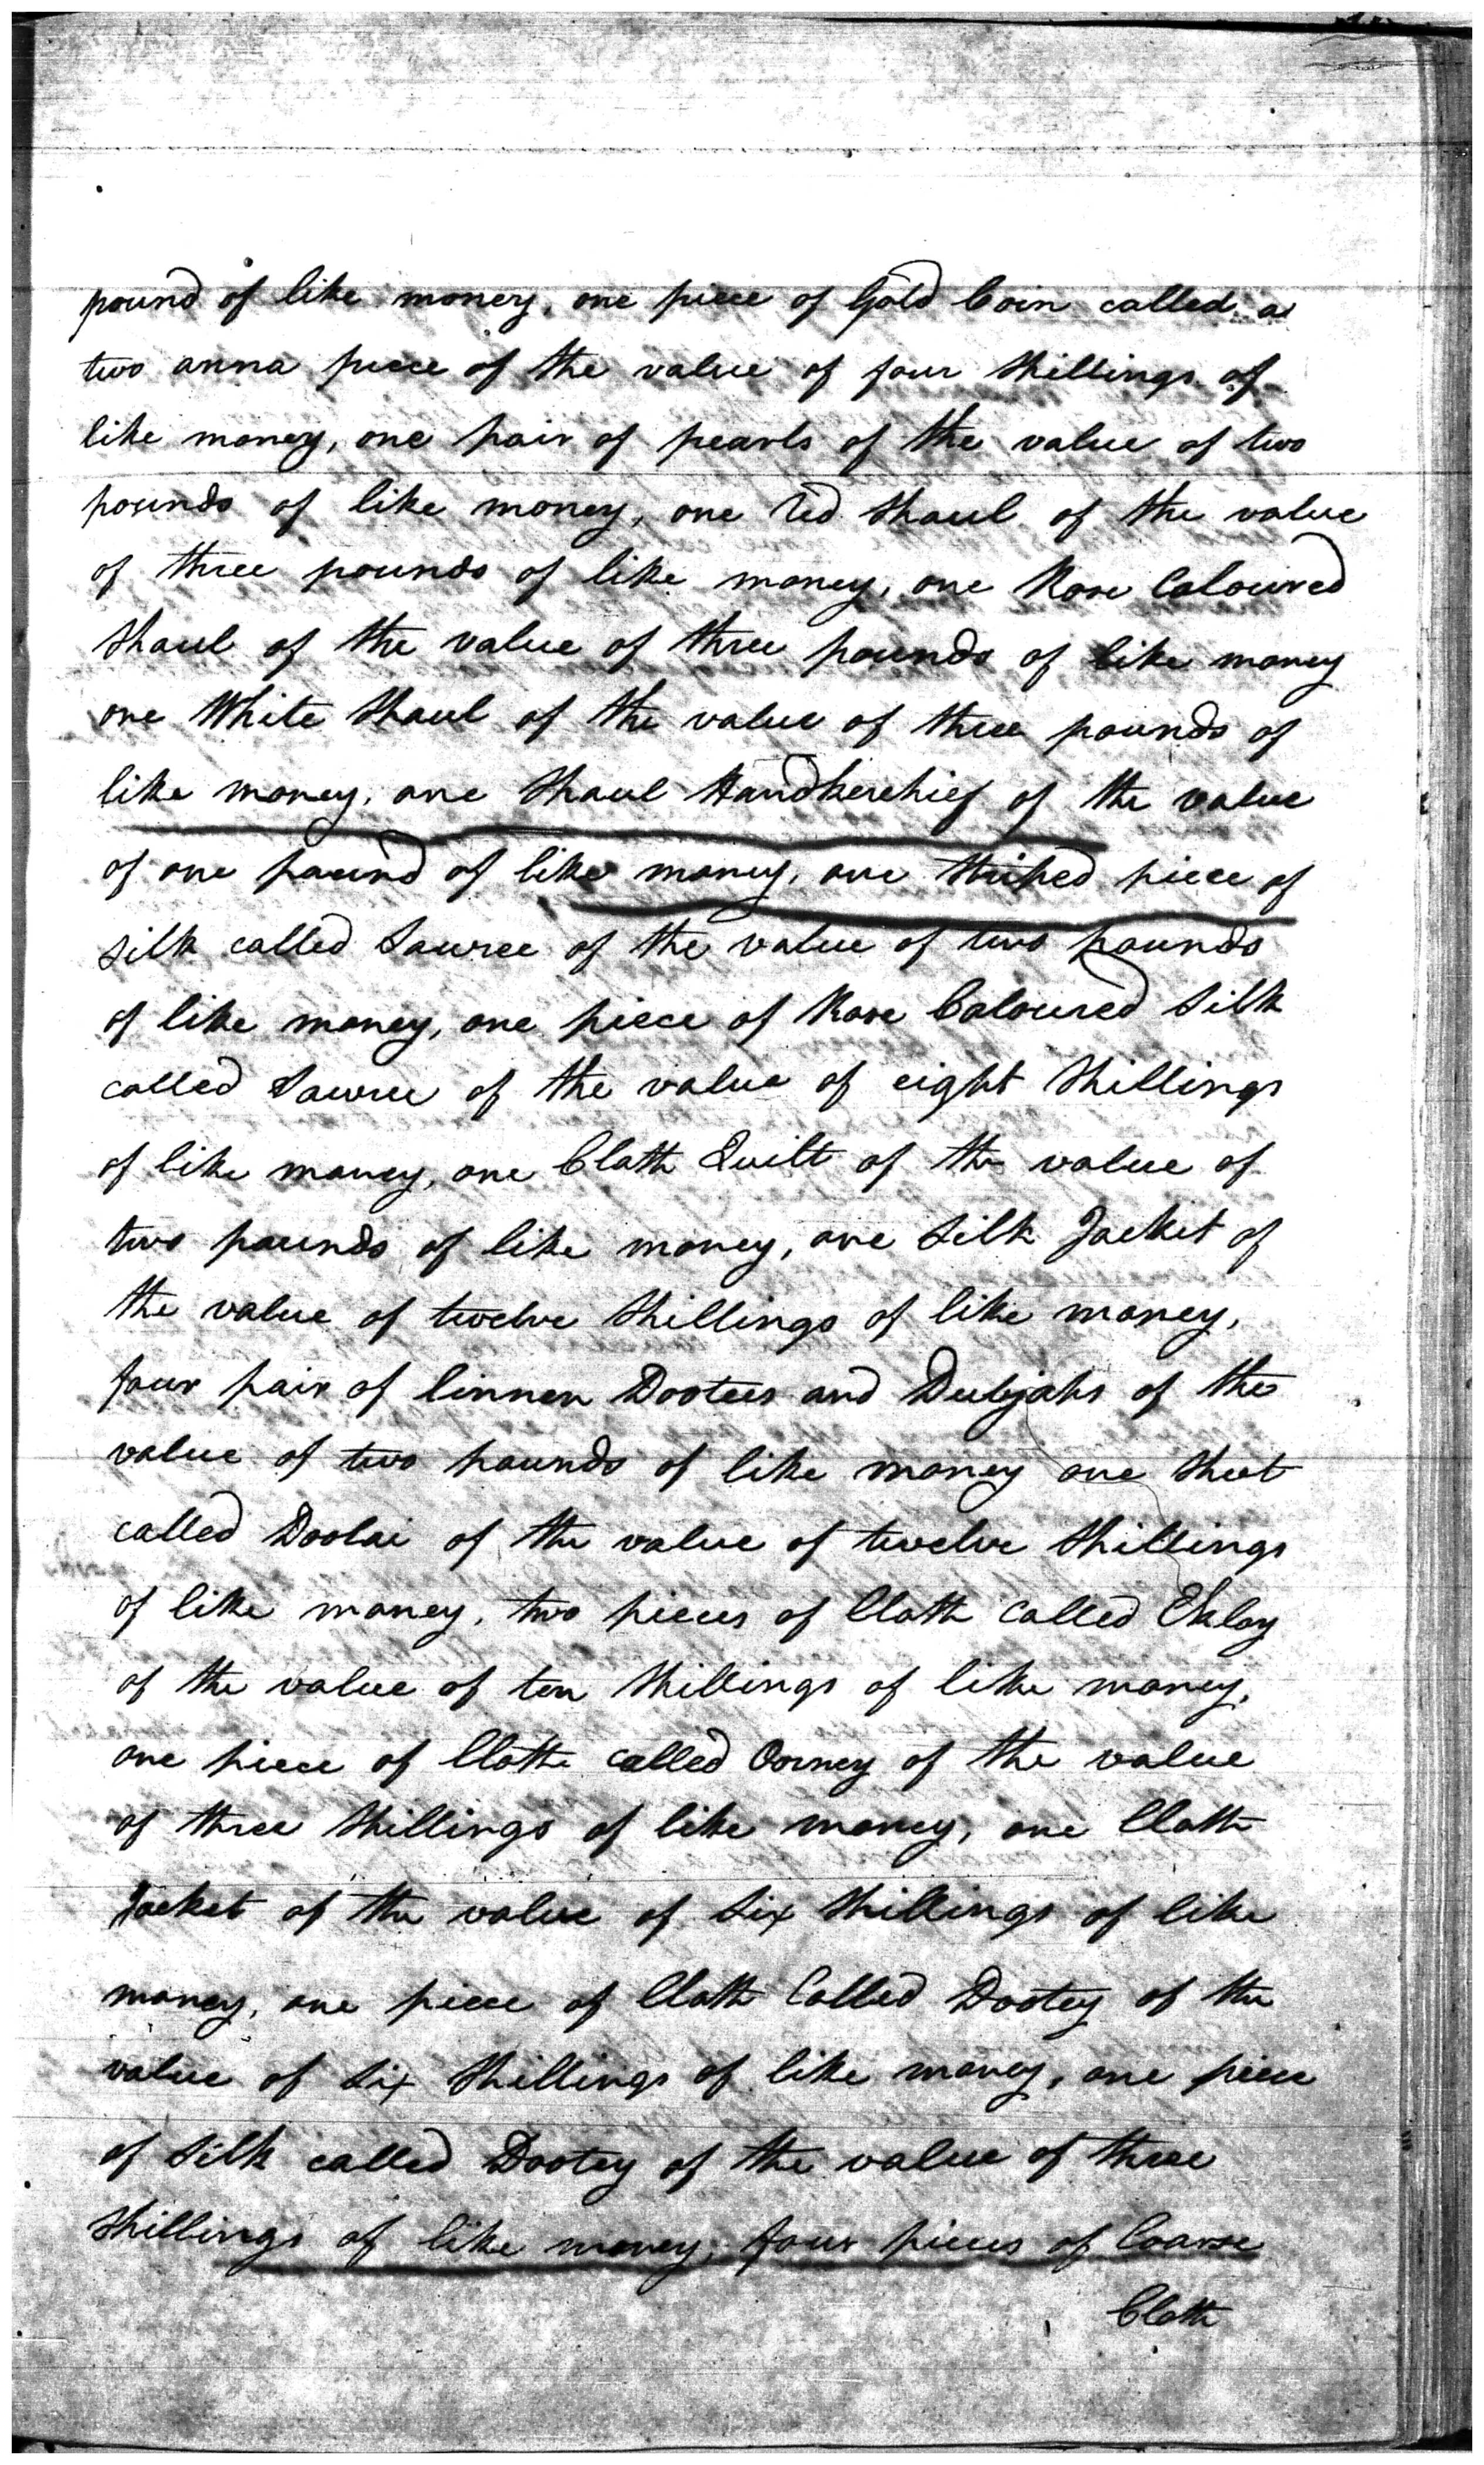 pound of like money, one piece of Gold Coin called a
two anna piece of the value of four Shillings of
like money, one pair of pearls of the value of two
pounds of like money, one red Shaul of the value
of three pounds of like money, one Rose Coloured
Shaul of the value of three pounds of like money
one White Shaul of the value of three pounds of
like money, one Shaul Handkerchief of the value
of one pound of like money, one Striped piece of
silk called Sauree of the value of two pounds
of like money, one piece of Rose Coloured Silk
called Sauree of the value of eight Shillings
of like money, one Cloth Quilt of the value of
two pounds of like money, one Silk Jacket of
the value of twelve Shillings of like money,
four pair of linnen Dootees and Dubjahs of the
value of two pounds of like money one Sheet
called Doolai of the value of twelve Shillings
of like money, two pieces of Cloth Called Eklay
of the value of ten Shillings of like money,
one piece of Cloth called Orney of the value
of three Shillings of like money, one Cloth
Jacket of the value of Six Shillings of like
money, one piece of Cloth Called Dootey of the
value of Six Shillings of like money, one piece
of Silk called Dootey of the value of three
Shillings of like money, four pieces of Coarse
Cloth